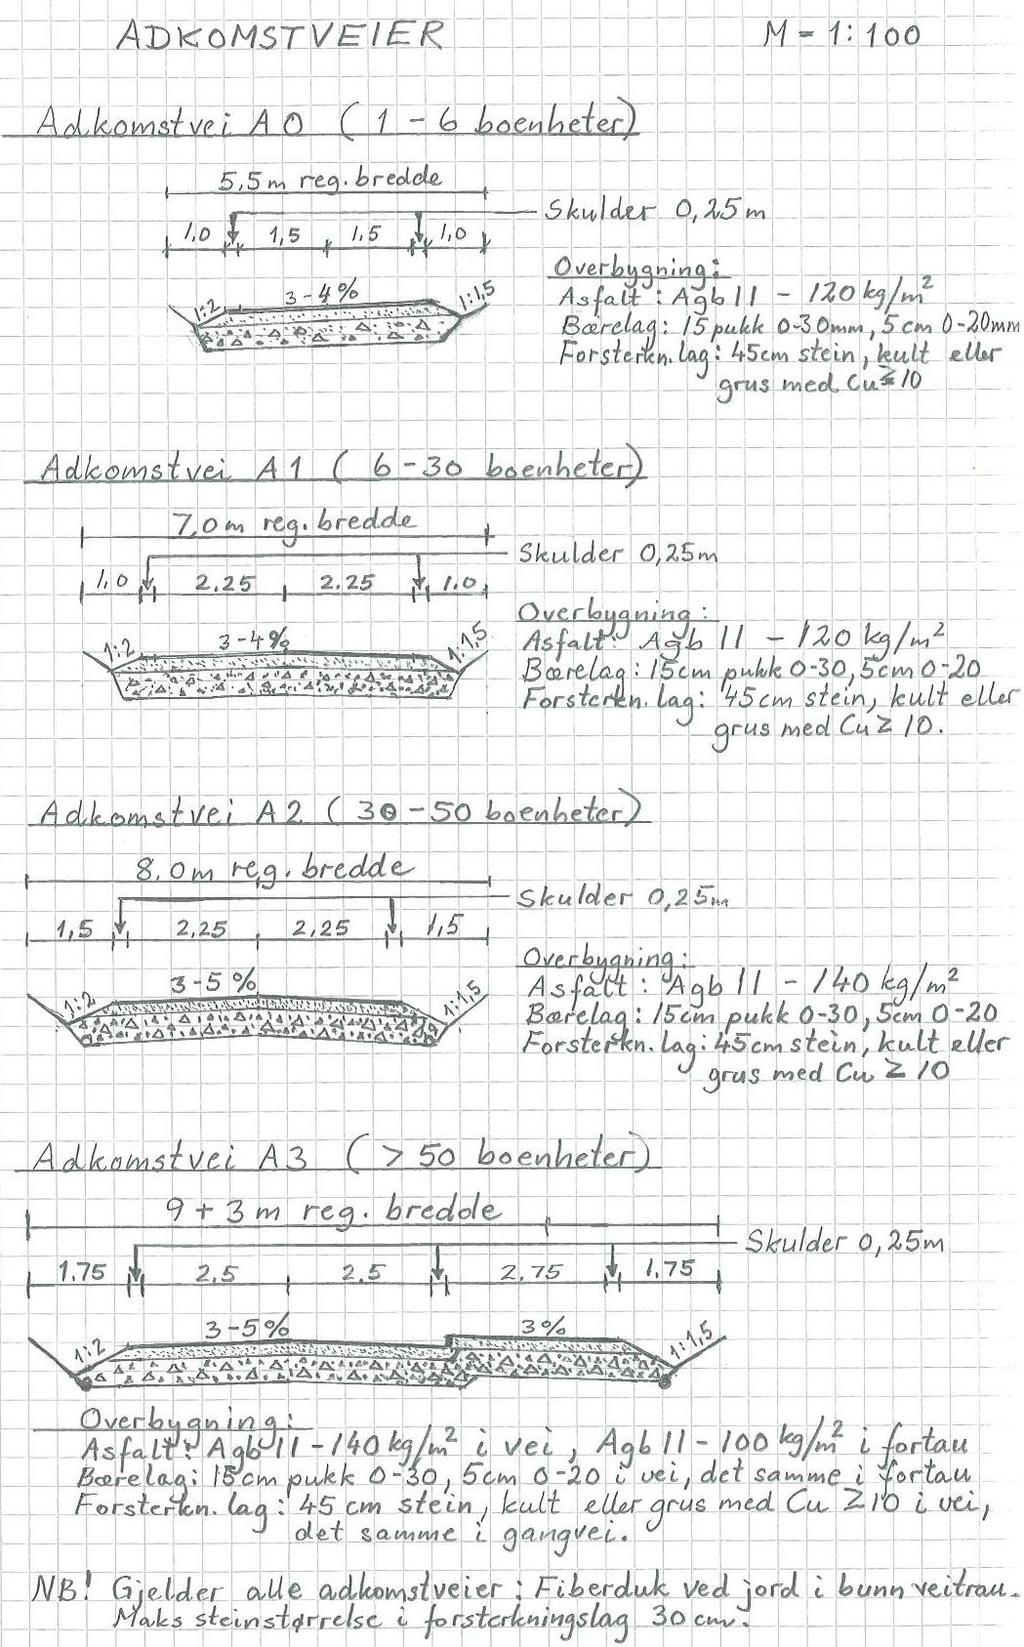 ADKOMSTVEIER M - 1:100
Adkomstvei A0 (1 - 6 boenheter)
5,5m reg. bredde
Skulder 0,25m
1,0 1,5 1,5 1,0
1:2 3-4% 1:1,5
Overbygning:
Asfalt: Agb 11 - 120 kg/m²
Bærelag: 15 pukk 0-30mm, 5 cm 0-20mm
Forsterkn. lag: 45cm stein, kult eller
grus med Cu ≥ 10
Adkomstvei A1 (6-30 boenheter)
7,0m reg. bredde
Skulder 0,25m
1,0 2,25 2.25 1.0
1:2 3-4% 1:1,5
Overbygning:
Asfalt: Agb 11 - 120 kg/m²
Bærelag: 15cm pukk 0-30, 5cm 0-20
Forsterkn. lag: 45cm stein, kult eller
grus med Cu ≥ 10.
Adkomstvei A2 (30-50 boenheter)
8,0m reg. bredde
Skulder 0,25m
1,5 2,25 2,25 1,5
1:2 3-5% 1:1,5
Overbygning:
Asfalt: Agb 11 - 140 kg/m²
Bærelag: 15cm pukk 0-30, 5cm 0-20
Forsterkn. lag: 45cm stein, kult eller
grus med Cu ≥ 10
Adkomstvei A3 (> 50 boenheter)
9 + 3 m reg. bredde
Skulder 0,25m
1.75 2,5 2,5 2,75 1,75
1:2 3-5% 3% 1:1,5
Overbygning:
Asfalt: Agb 11 - 140 kg/m² i vei, Agb 11 - 100 kg/m² i fortau
Bærelag: 15cm pukk 0-30, 5cm 0-20 i vei, det samme i fortau
Forsterkn. lag: 45 cm stein, kult eller grus med Cu ≥ 10 i vei,
det samme i gangvei.
NB! Gjelder alle adkomstveier: Fiberduk ved jord i bunn veitrau.
Maks steinstørrelse i forsterkningslag 30 cm.